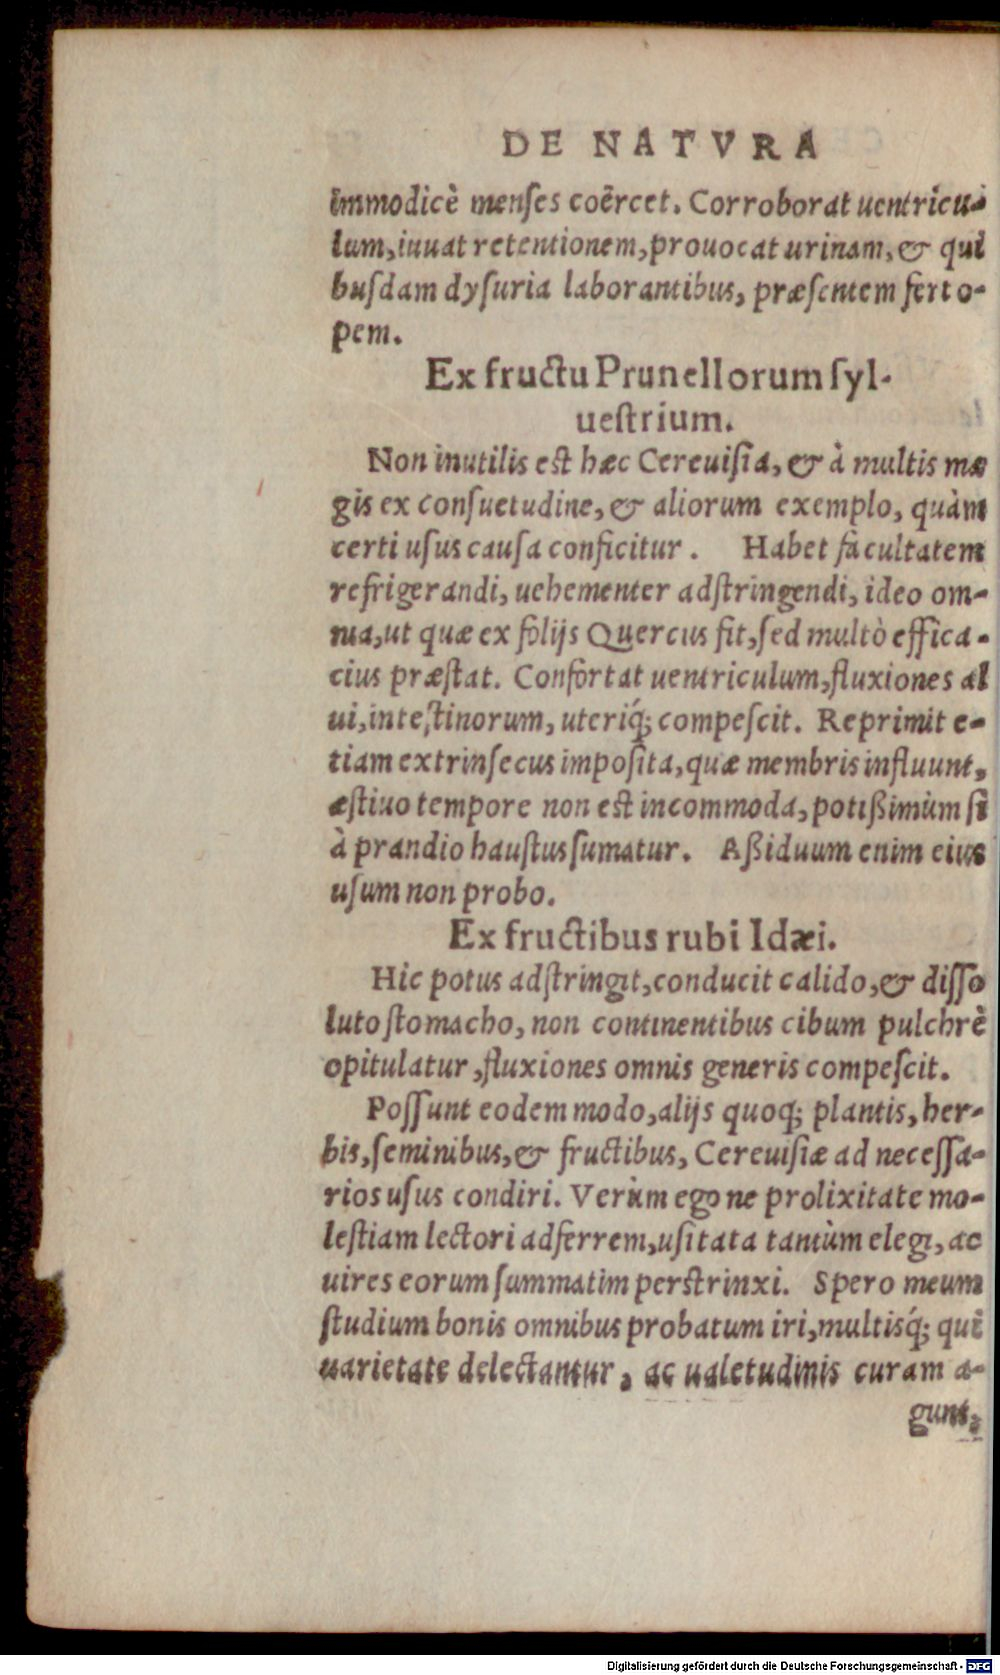 DE NATVRA
immodicè menſes coërcet. Corroborat uentricu-
lum, iuuat retentionem, prouocat urinam, & qui
buſdam dyſuria laborantibus, præſentem fert o-
pem.
Ex fructu Prunellorum ſyl-
ueſtrium.
Non inutilis eſt hæc Cereuiſia, & à multis ma
gis ex conſuetudine, & aliorum exemplo, quàm
certi uſus cauſa conficitur. Habet facultatem
refrigerandi, uehementer adſtringendi, ideo om-
nia, ut quæ ex folijs Quercus fit, ſed multò effica-
cius præſtat. Confortat uentriculum, fluxiones al
ui, inteſtinorum, uteriq́; compeſcit. Reprimit e-
tiam extrinſecus impoſita, quæ membris influunt,
æſtiuo tempore non eſt incommoda, potißimùm ſi
à prandio hauſtus ſumatur. Aßiduum enim eius
uſum non probo.
Ex fructibus rubi Idæi.
Hic potus adſtringit, conducit calido, & diſſo
luto ſtomacho, non continentibus cibum pulchrè
opitulatur, fluxiones omnis generis compeſcit.
Poſſunt eodem modo, alijs quoq; plantis, her-
bis, ſeminibus, & fructibus, Cereuiſiæ ad neceſſa-
rios uſus condiri. Verùm ego ne prolixitate mo-
leſtiam lectori adferrem, uſitata tantùm elegi, ac
uires eorum ſummatim perſtrinxi. Spero meum
ſtudium bonis omnibus probatum iri, multisq́; qui
uarietate delectantur, ac ualetudinis curam a-
gunt,
Digitalisierung gefördert durch die Deutsche Forschungsgemeinschaft - DFG